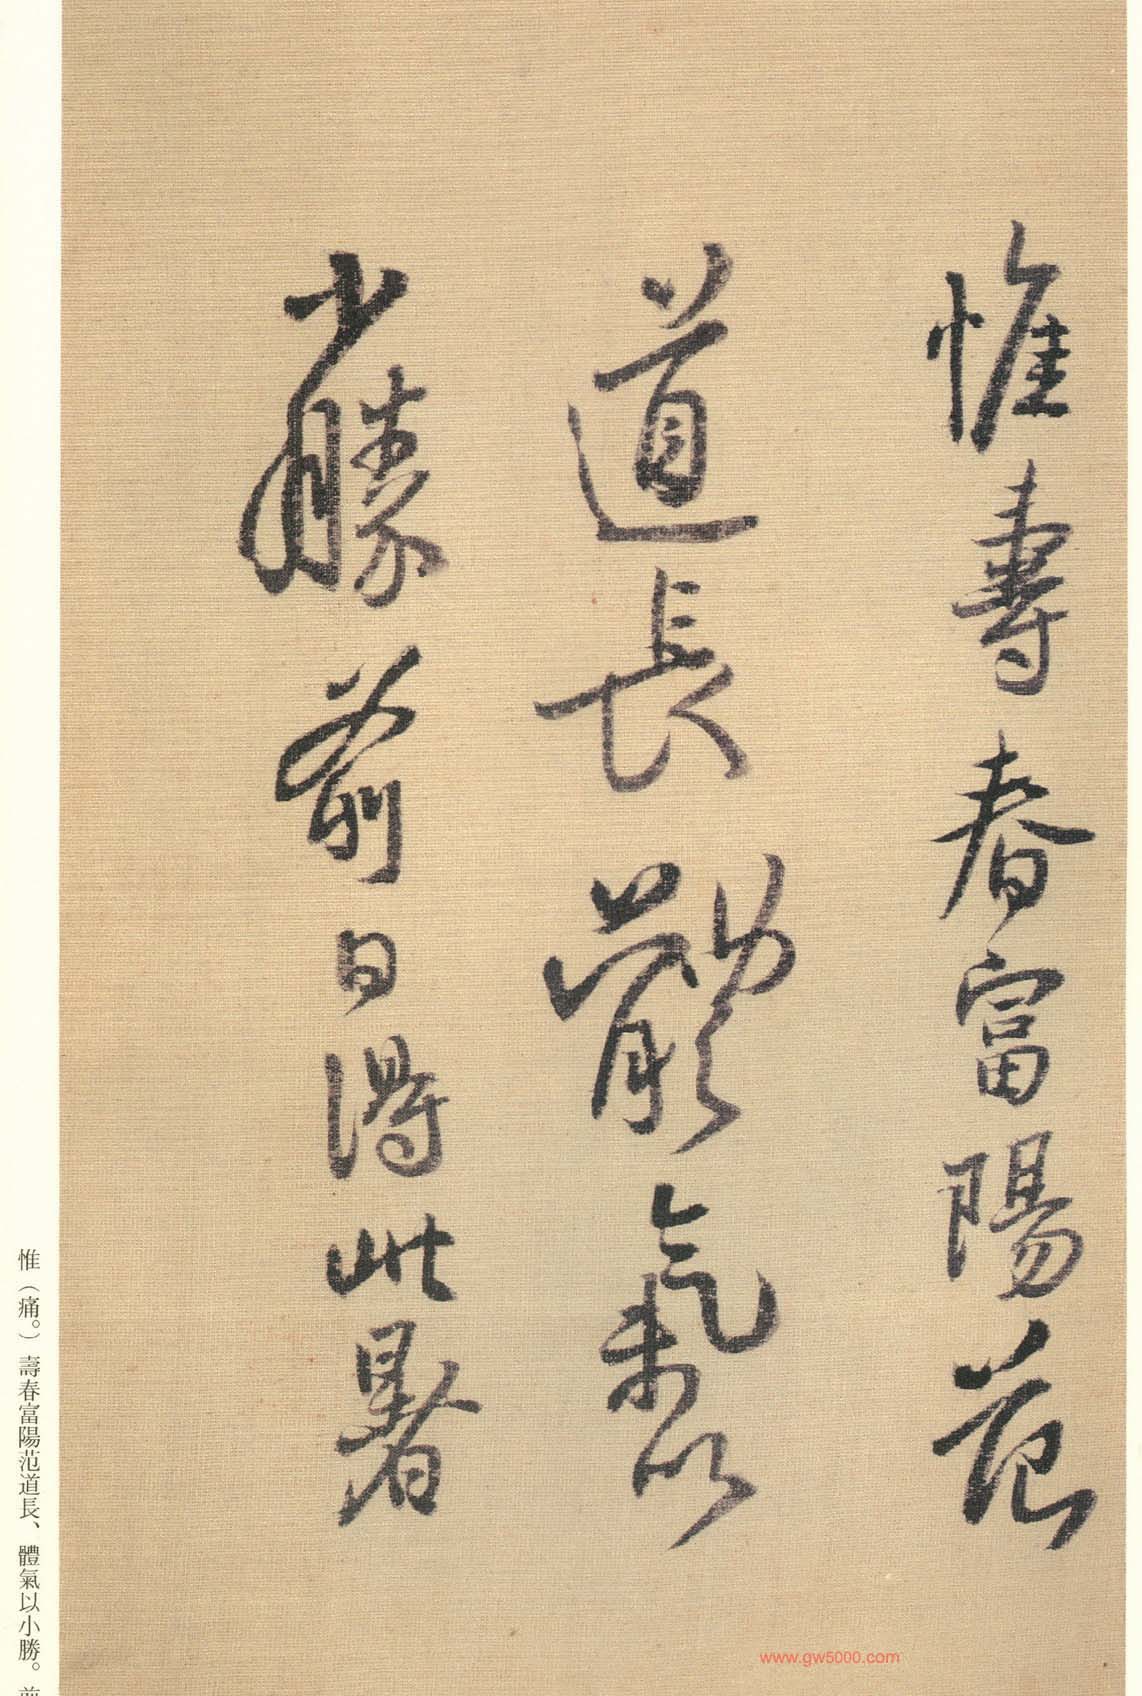 惟壽春富陽范
道長體氣以
小勝前日得此暑
惟（痛。）壽春富陽范道長、體氣以小勝。前
www.gw5000.com